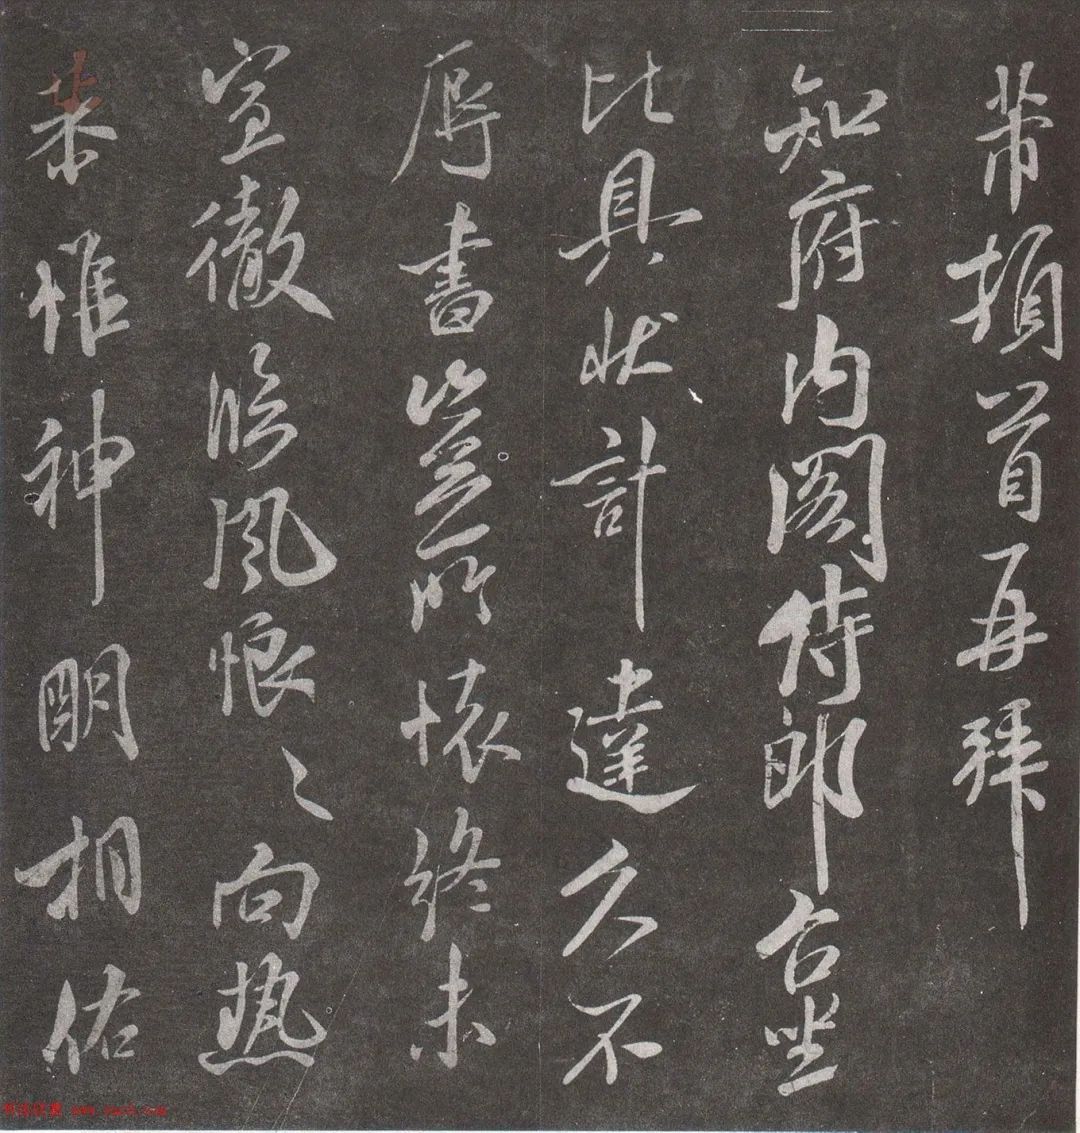 芾頓首再拜
知府内閣侍郎台坐
比具狀計達久不
辱書豈所懷終未
宣徹臨風恨〻向热
恭惟神明相佑